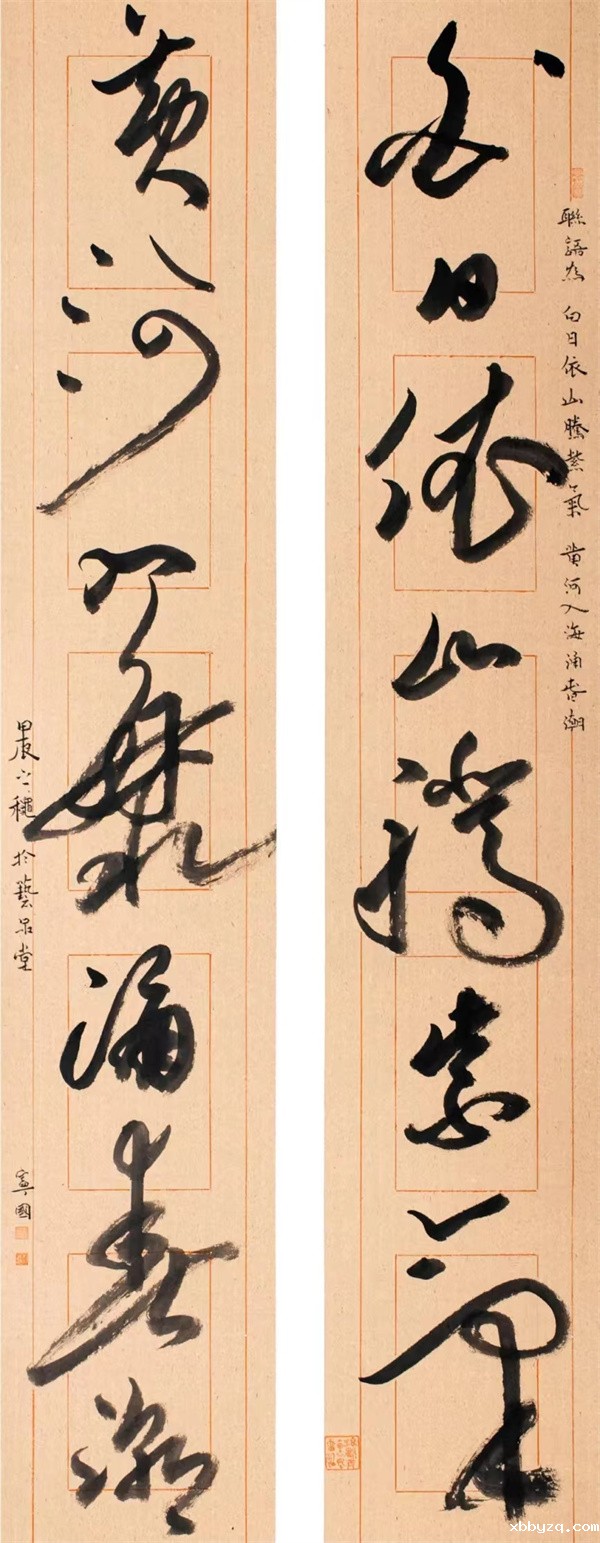 白日依山騰紫氣
聯語為 白日依山騰紫氣 黃河入海涌春潮
黃河入海涌春潮
甲辰之穐 於藝品堂 寧國
xbbyzq.com